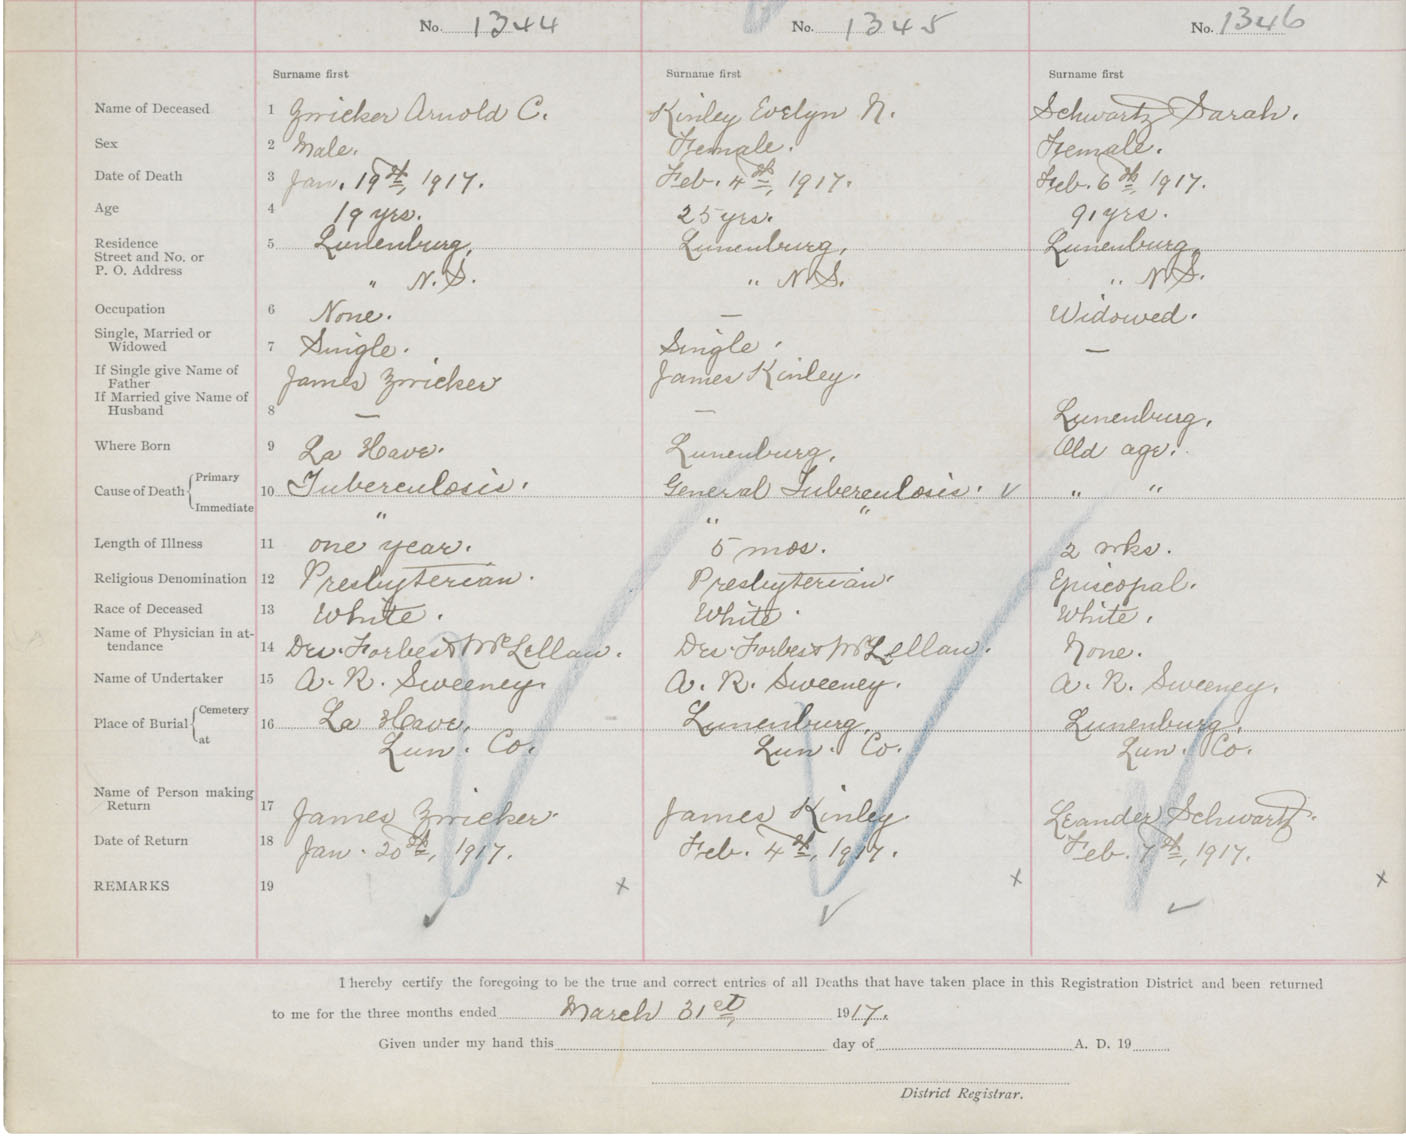 No. 1344 No. 1345 No. 1346
Surname first Surname first Surname first
Name of Deceased 1 Zwicker Arnold C. Kinley Evelyn N. Schwartz Sarah.
Sex 2 Male. Female. Female.
Date of Death 3 Jan. 19th, 1917. Feb. 4th, 1917. Feb. 6th, 1917.
Age 4 19 yrs. 25 yrs. 91 yrs.
Residence 5 Lunenburg, Lunenburg, Lunenburg,
Street and No. or
P. O. Address " N.S. " N.S. " N.S.
Occupation 6 None. — Widowed.
Single, Married or
Widowed 7 Single. Single. —
If Single give Name of
Father James Zwicker James Kinley.
If Married give Name of
Husband 8 — — Lunenburg.
Where Born 9 La Have. Lunenburg. Old age.
Cause of Death { Primary
10 Tuberculosis. General Tuberculosis. ✓ " "
Immediate " " "
Length of Illness 11 one year. 5 mos. 2 wks.
Religious Denomination 12 Presbyterian. Presbyterian. Episcopal.
Race of Deceased 13 White. White. White.
Name of Physician in at-
tendance 14 Drs. Forbes & McLellan. Drs. Forbes & McLellan. None.
Name of Undertaker 15 A. R. Sweeney. A. R. Sweeney. A. R. Sweeney.
Place of Burial { Cemetery
16 La Have, Lunenburg, Lunenburg,
at Lun. Co. Lun. Co. Lun. Co.
Name of Person making
Return 17 James Zwicker. James Kinley. Leander Schwartz.
Date of Return 18 Jan. 20th, 1917. Feb. 4th, 1917. Feb. 7th, 1917.
REMARKS 19 x x x
✓ ✓ ✓
I hereby certify the foregoing to be the true and correct entries of all Deaths that have taken place in this Registration District and been returned
to me for the three months ended March 31st, 1917.
Given under my hand this day of A. D. 19
District Registrar.